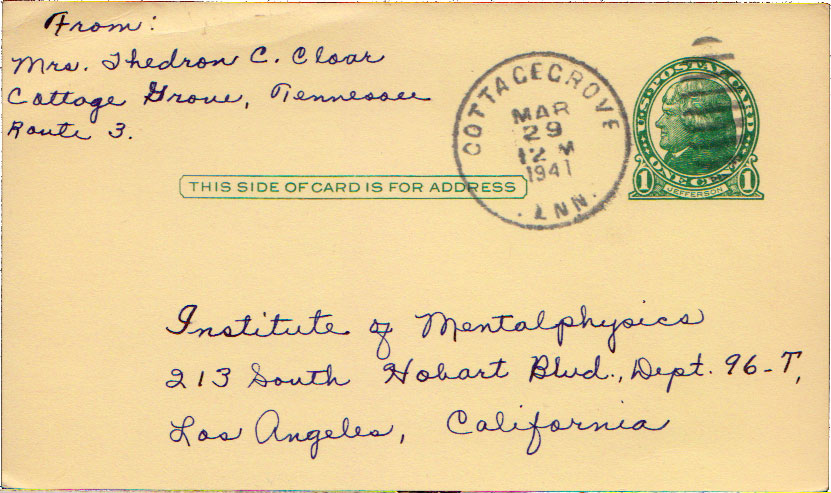 From:
Mrs. Thedron C. Cloar
Cottage Grove, Tennessee
Route 3.
COTTAGEGROVE
MAR
29
12 M
1941
ENN.
U.S. POSTAL CARD
ONE CENT
1 JEFFERSON 1
THIS SIDE OF CARD IS FOR ADDRESS
Institute of Mentalphysics
213 South Hobart Blvd., Dept. 96-T,
Los Angeles, California